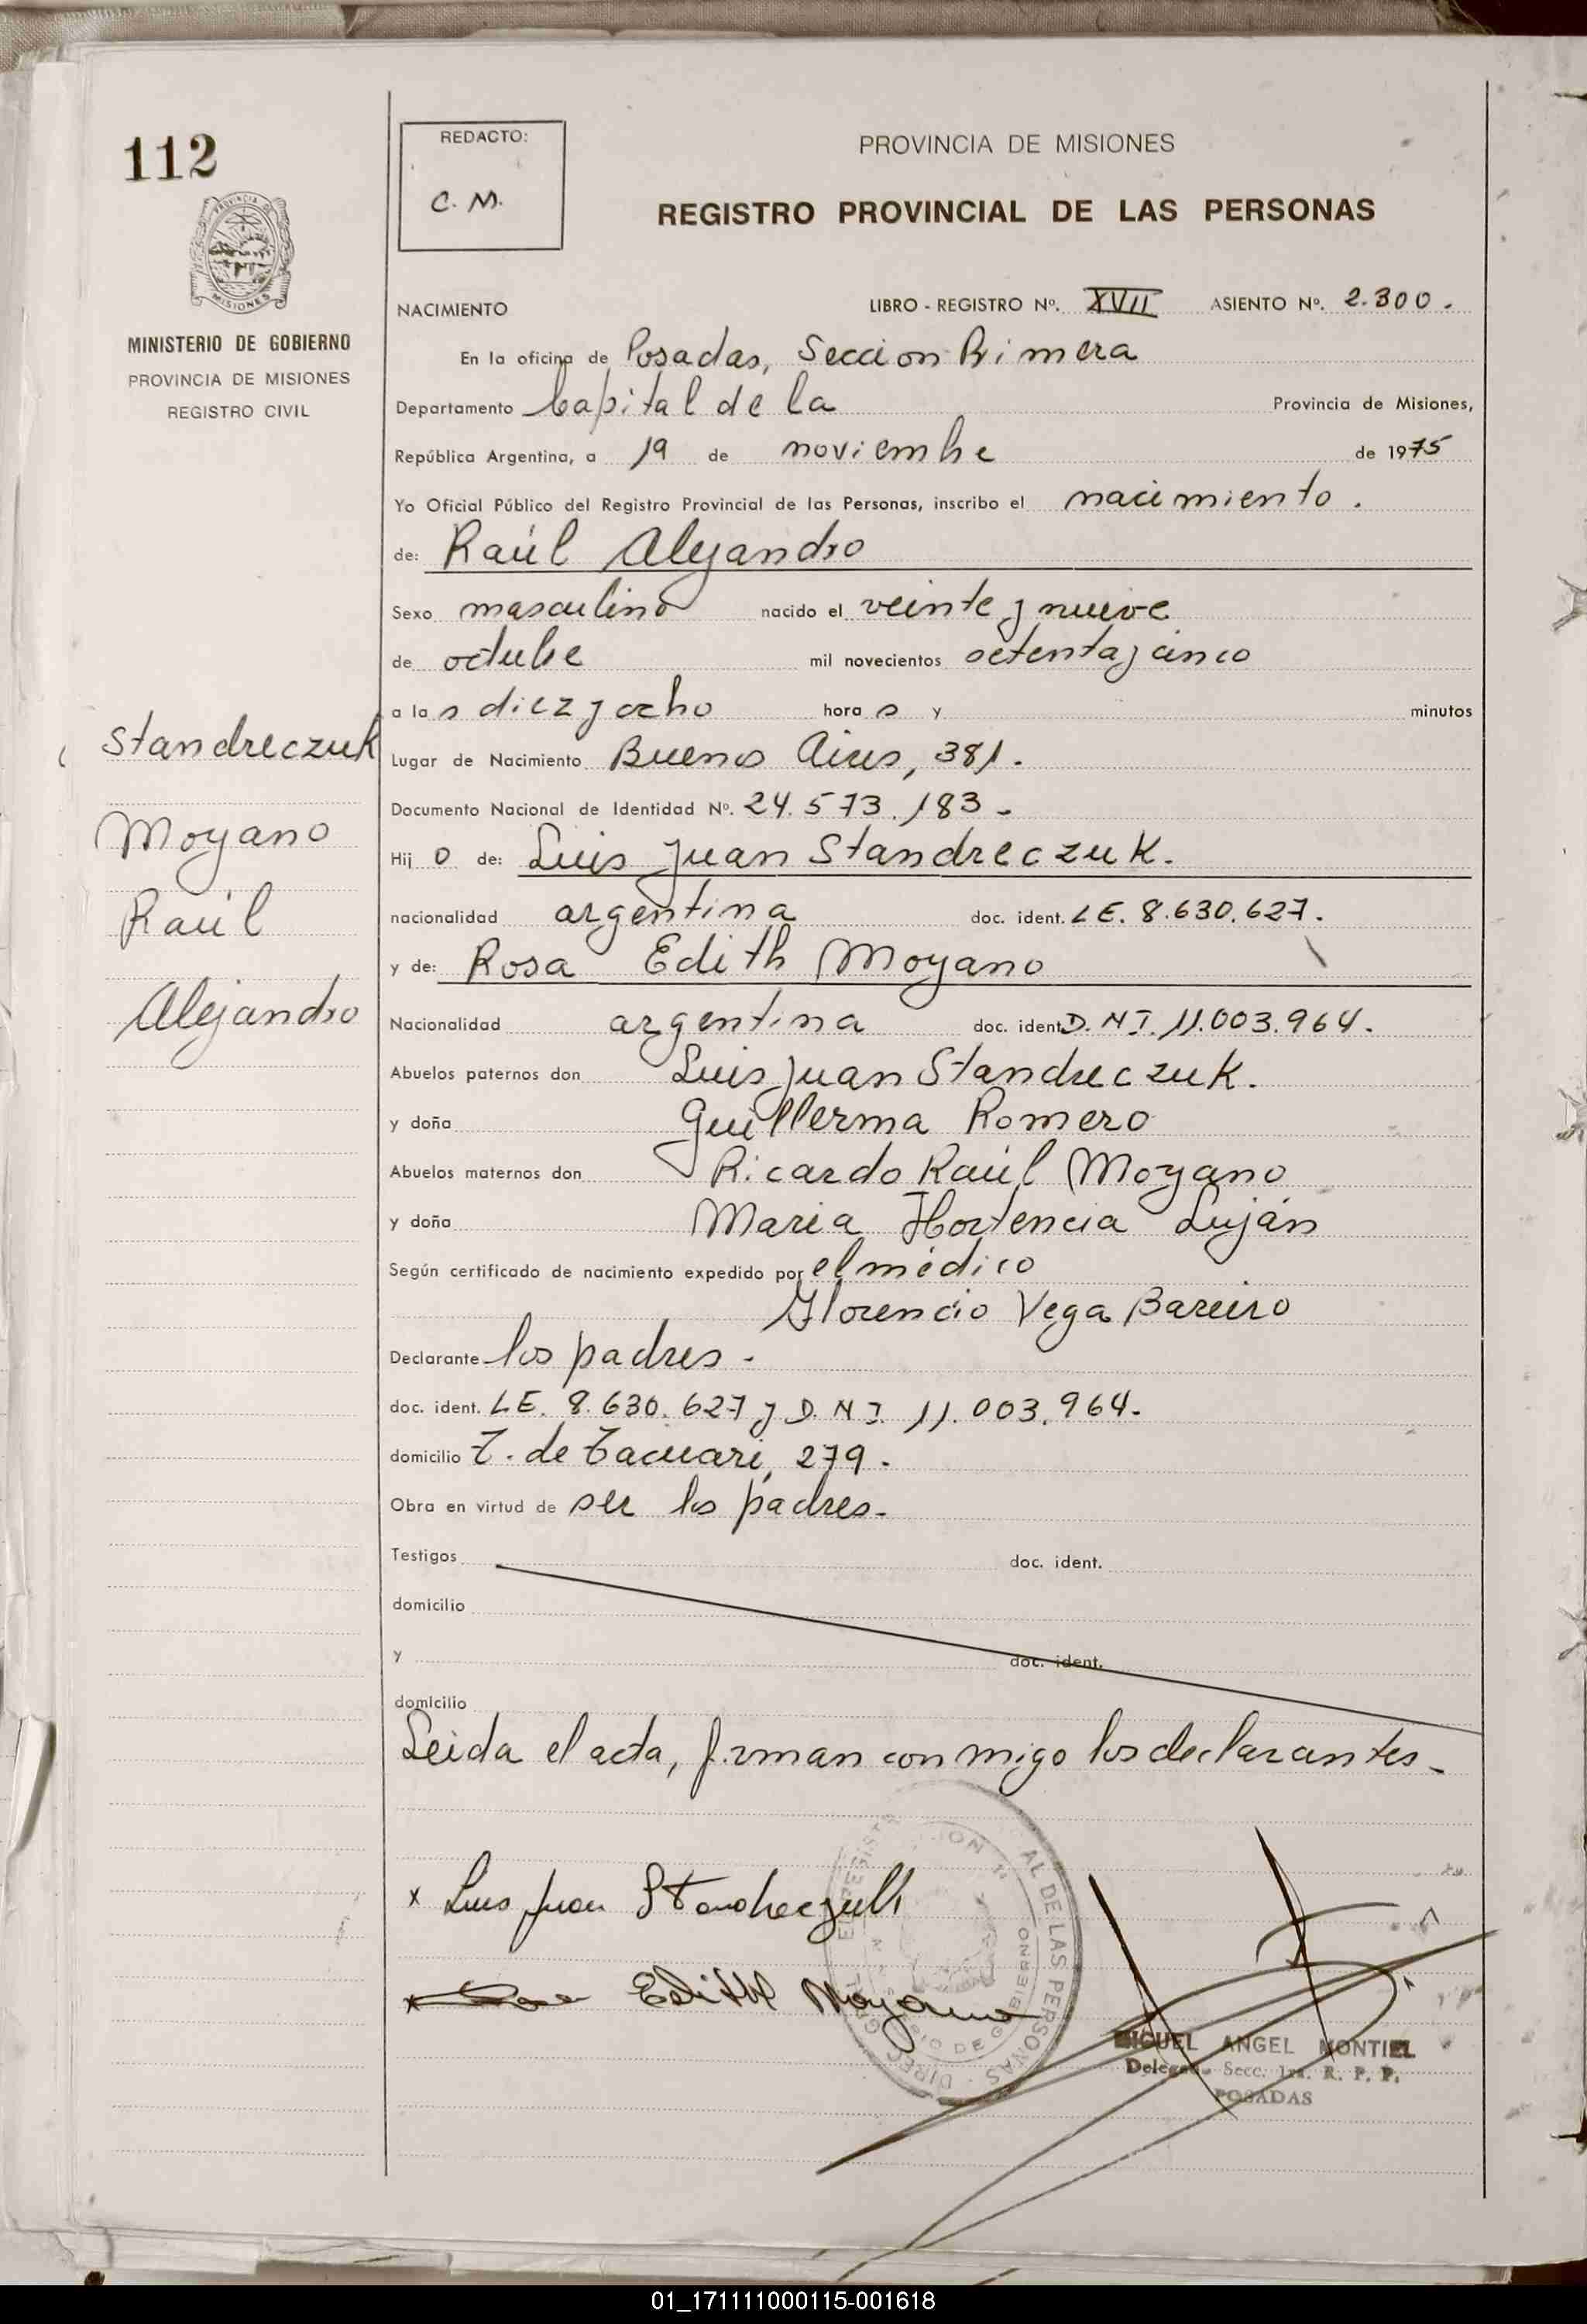 112
REDACTO:
C. M.
PROVINCIA DE MISIONES
REGISTRO PROVINCIAL DE LAS PERSONAS
PROVINCIA DE
MISIONES
MINISTERIO DE GOBIERNO
PROVINCIA DE MISIONES
REGISTRO CIVIL
NACIMIENTO LIBRO - REGISTRO Nº. XVII ASIENTO Nº. 2.300.
En la oficina de Posadas, Seccion Primera
Departamento Capital de la Provincia de Misiones,
República Argentina, a 19 de noviembre de 1975
Yo Oficial Público del Registro Provincial de las Personas, inscribo el nacimiento.
de: Raúl Alejandro
Sexo masculino nacido el veinte y nueve
de octubre mil novecientos setenta y cinco
a las diez y ocho horas y minutos
Standreczuk
Lugar de Nacimiento Buenos Aires, 381.
Documento Nacional de Identidad Nº. 24.573.183-
Moyano
Hijo de: Luis Juan Standreczuk.
Raúl
nacionalidad argentina doc. ident. LE. 8.630.627.
y de: Rosa Edith Moyano
Alejandro
Nacionalidad argentina doc. ident. D.N.I. 11.003.964.
Abuelos paternos don Luis Juan Standreczuk.
y doña Guillerma Romero
Abuelos maternos don Ricardo Raúl Moyano
y doña Maria Hortencia Luján
Según certificado de nacimiento expedido por el médico
Florencio Vega Bareiro
Declarante los padres.
doc. ident. LE. 8.630.627 y D.N.I. 11.003.964-
domicilio T. de Tacuari, 279.
Obra en virtud de ser los padres.
Testigos doc. ident.
domicilio
y doc. ident.
domicilio
Leida el acta, firman conmigo los declarantes-
x Luis Juan Standreczuk
x Edith Moyano
AL DE LAS PERSONAS
MIGUEL ANGEL MONTIEL
Delegado Secc. 1ra. R. P. P.
POSADAS
01_171111000115-001618